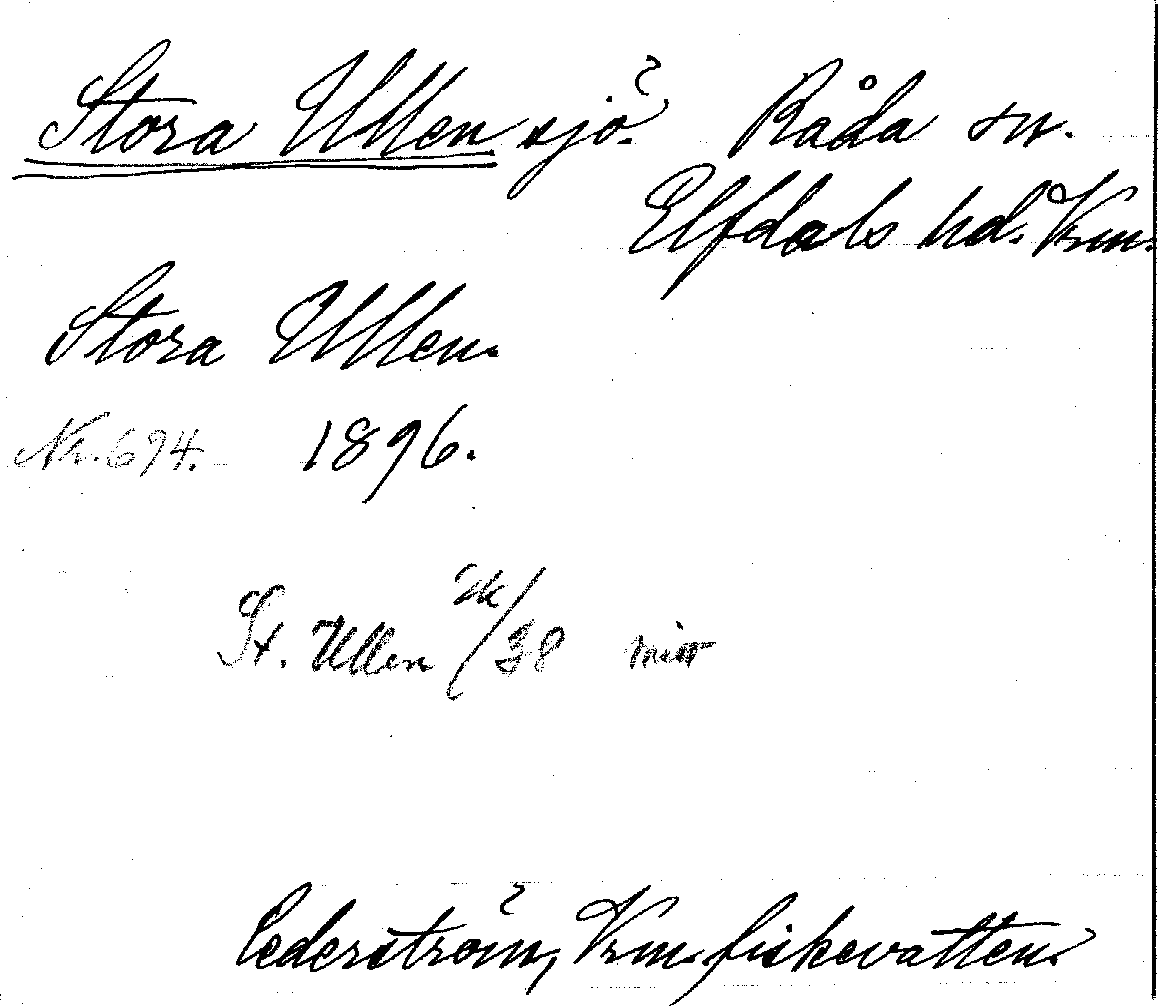 Stora Ullen sjö. Råda sn.
Elfdals hd. Vrm.
Stora Ullen.
Nr. 694. 1896.
St. Ullen /38
Cederström, Vrm. fiskevatten.